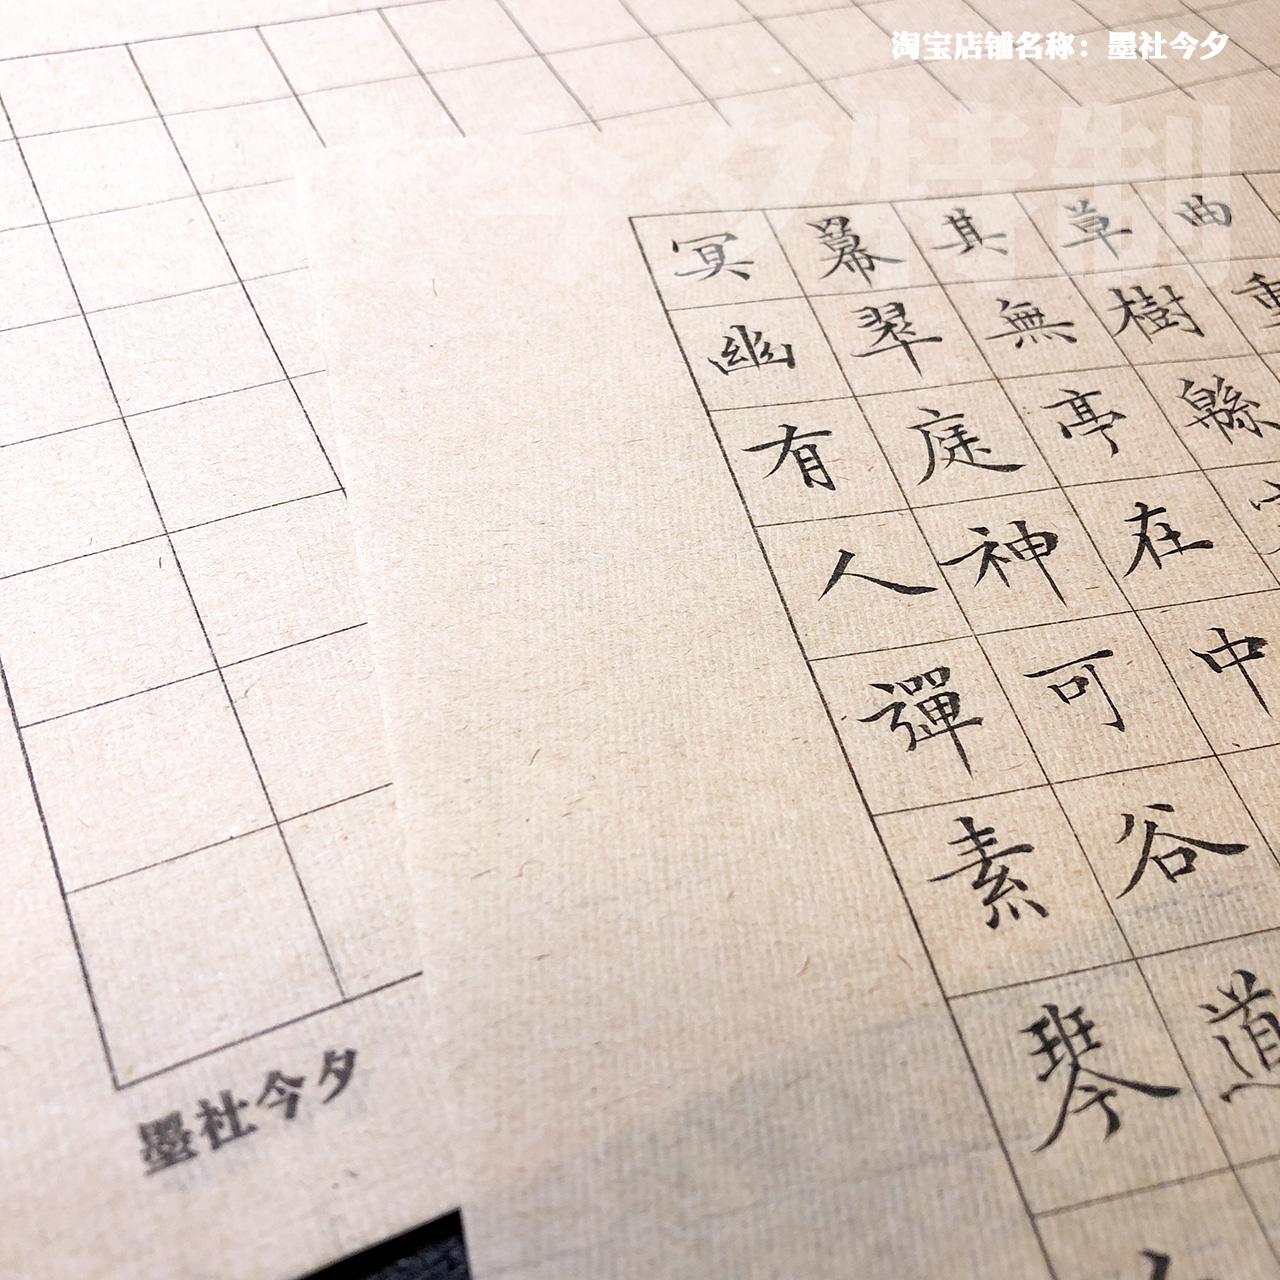 淘宝店铺名称：墨社今夕
今夕特制
曲
草樹緜
其無亭在中
羃翠庭神可谷道
冥幽有人彈素琴
墨社今夕